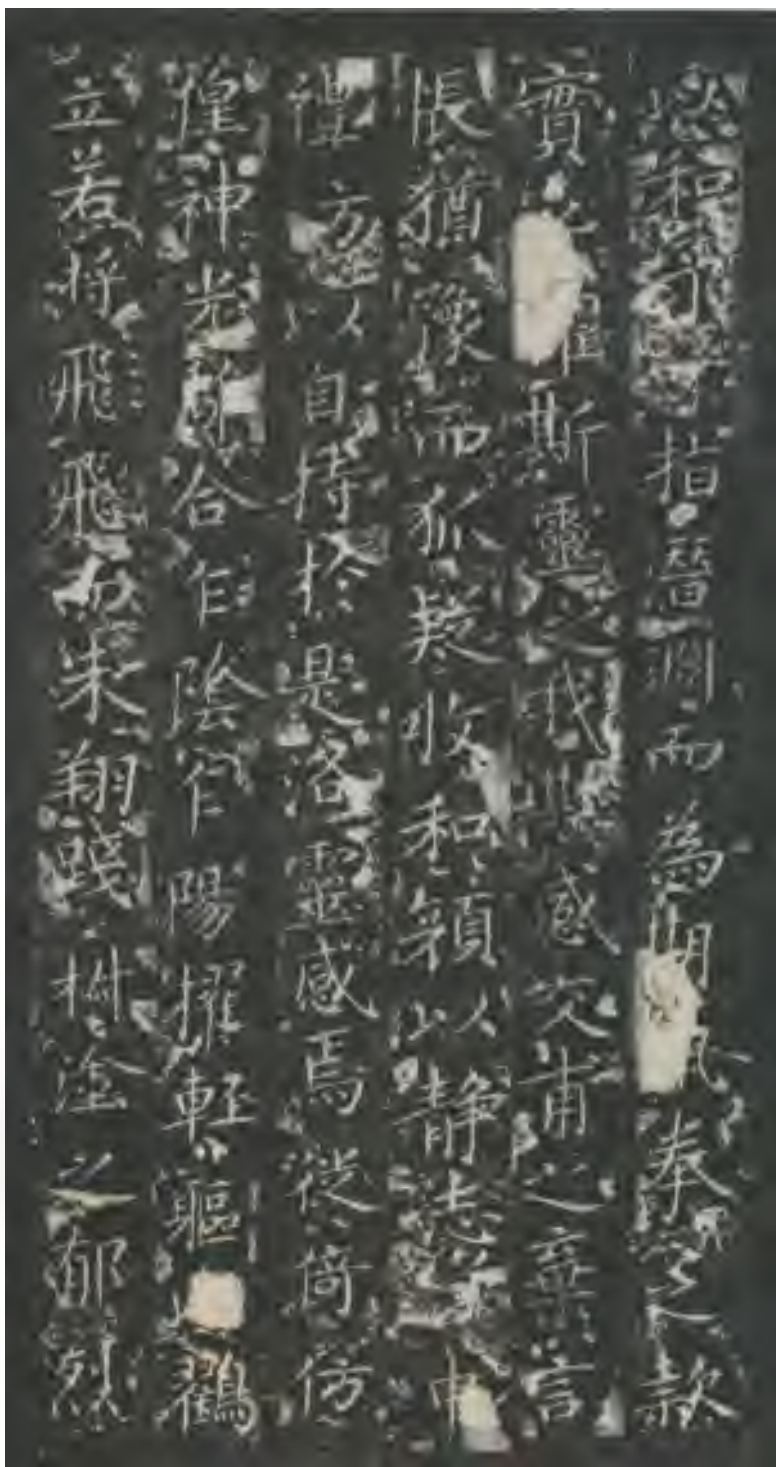 和予兮指潛淵而為期奉之款
實懼斯靈之我欺感交甫之棄言
悵猶豫而狐疑收和顏以静志兮申
禮方以自持於是洛靈感焉徙倚仿
徨神光離合乍陰乍陽擢軽軀鶴
立若将飛飛而未翔踐椒塗之郁烈